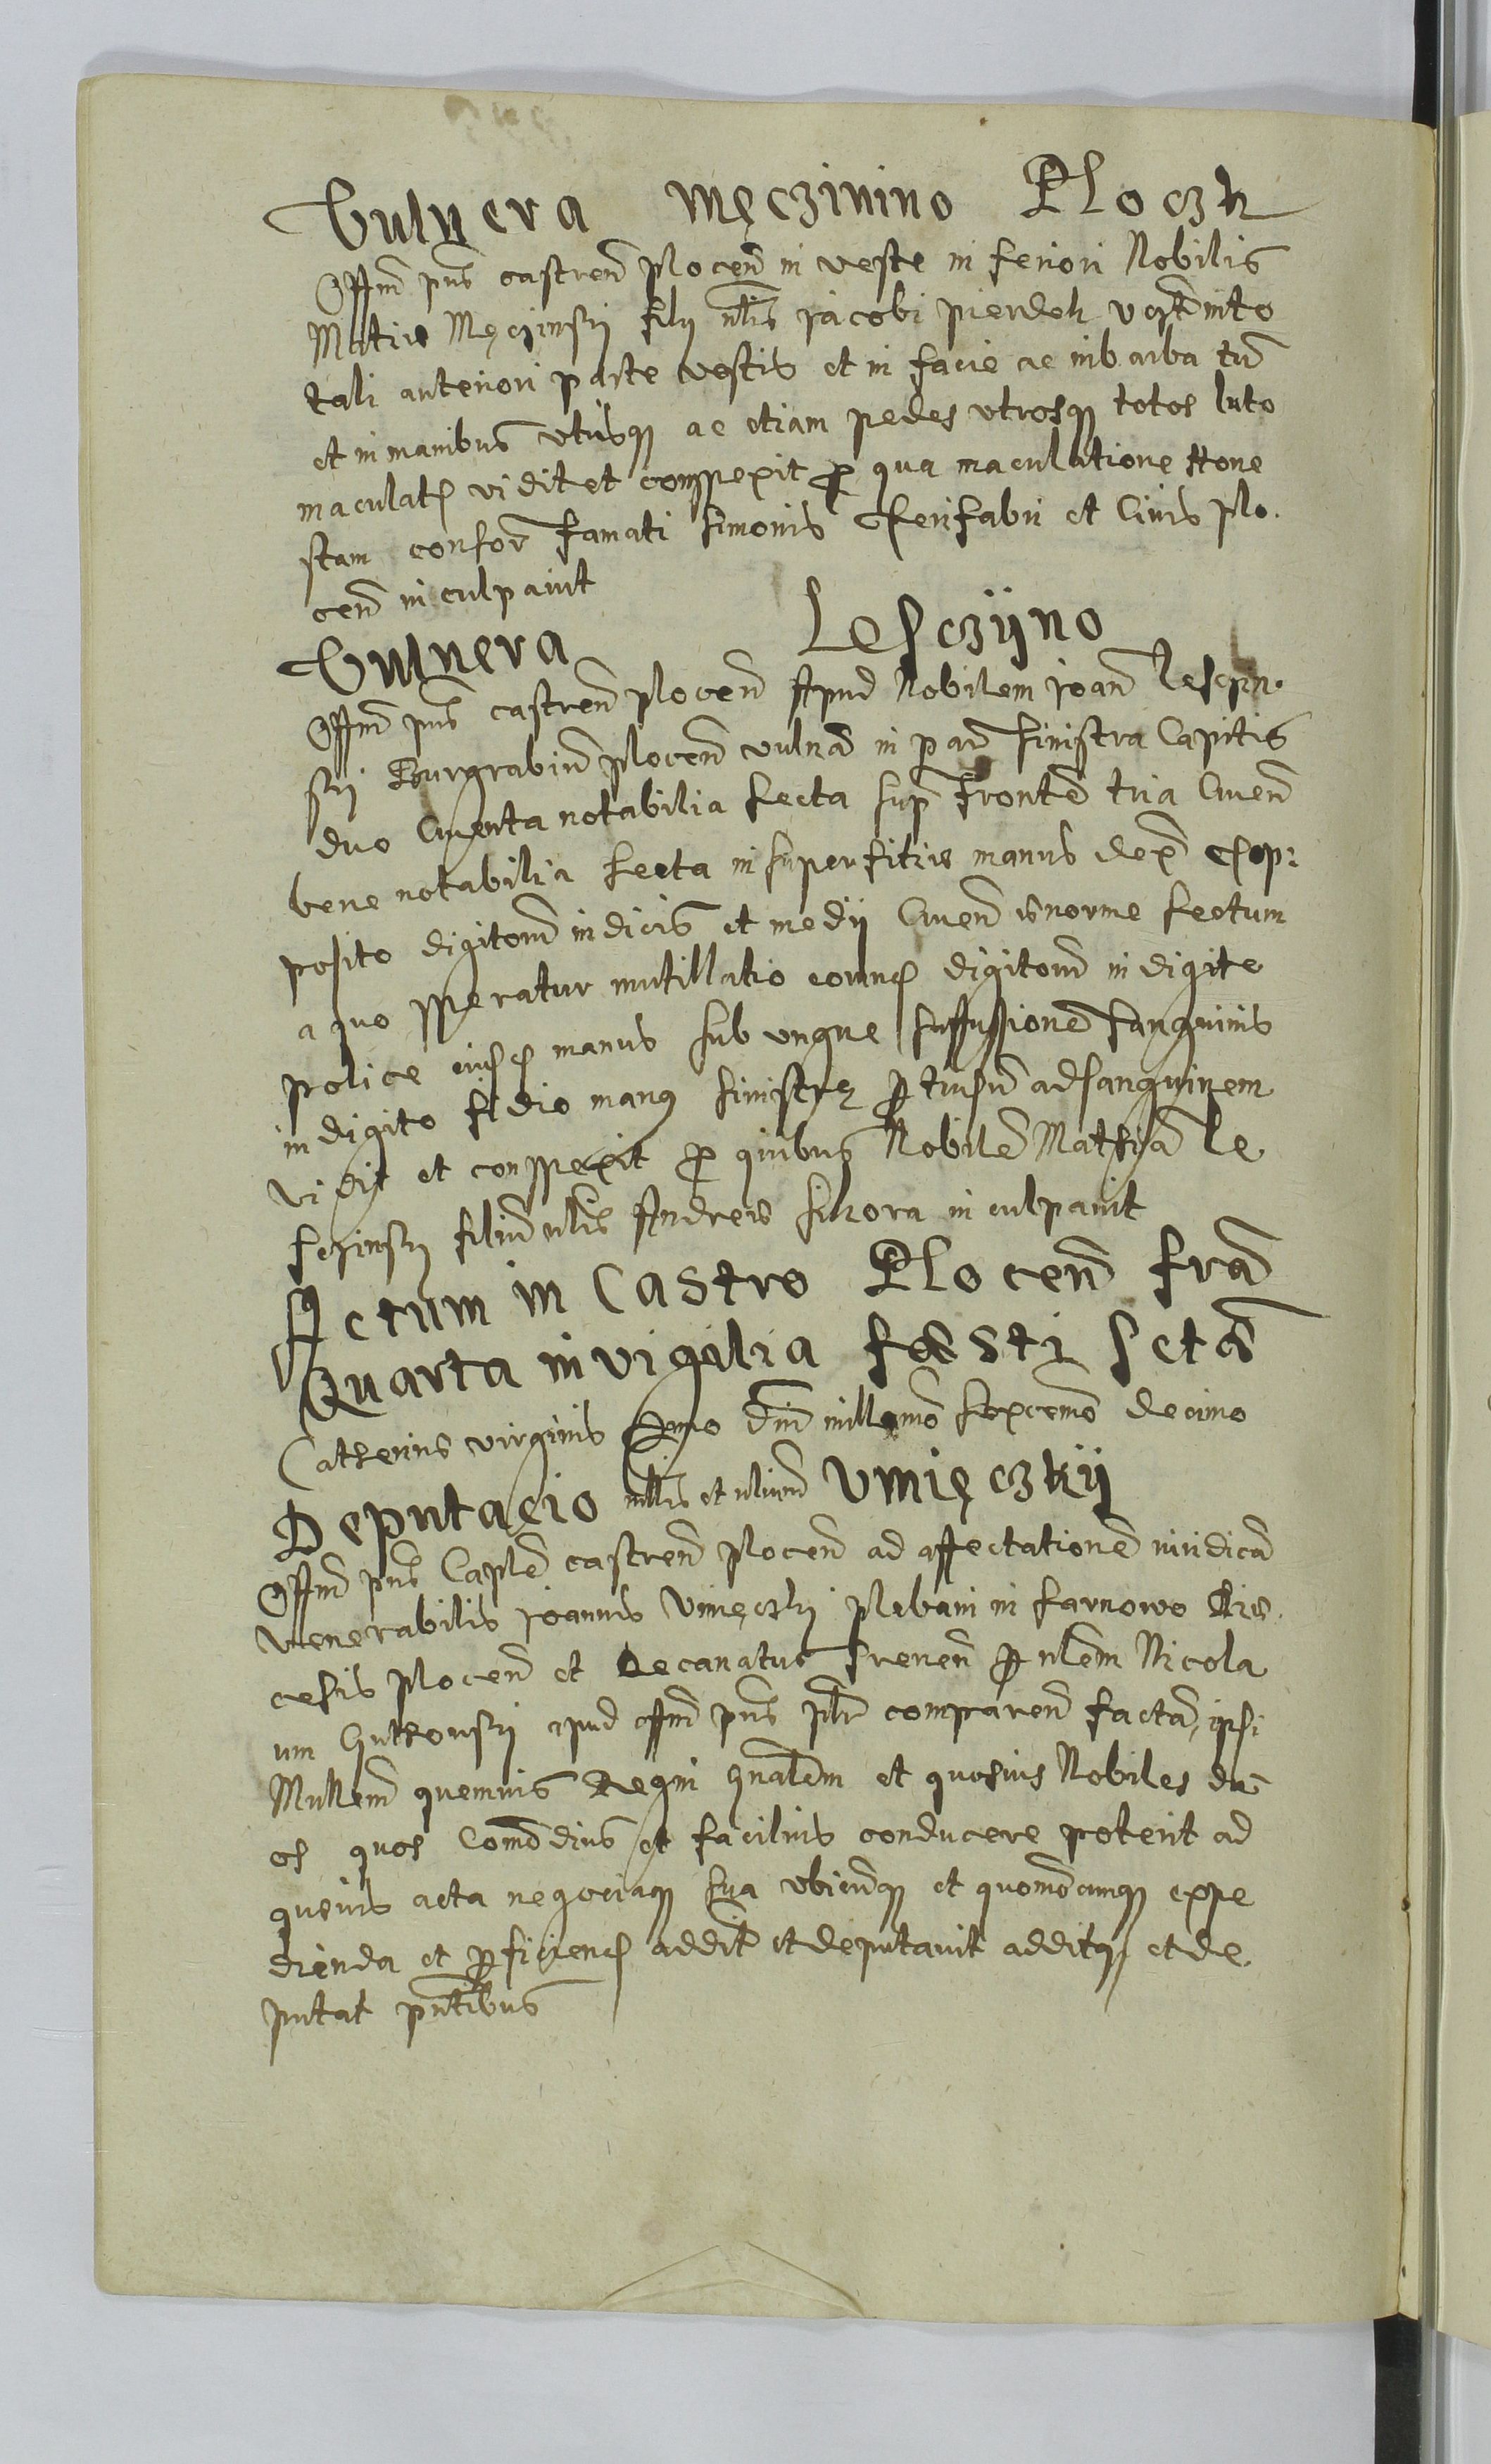 Vulnera Męczinino Ploczk
Offm pns castren plocen in veste inferiori Nobilis
Matie Męczinsky filij nlis Jacobi pierdoh
tali anteriori parte vestis et in facie ac in barba tum
et in manibus utrisq ac etiam pedes utrosq totos luto
maculat vidit et conspexit p qua maculatione Hone
stam consor famati Simonis Serifabri et Civis plo.
cen inculpavit
Vulnera Lesczÿno
Offm pns castren plocen Apud Nobilem Joan Lesczin
sky Burgrabiu plocen vulnera in par sinistra Capitis
duo Cruenta notabilia secta sup fronte tria Cruen
bene notabilia secta in superfitie manus dex ex op:
posito digitorum indicis et medij Cruen enorme sectum
a quo speratur mutillatio eorund digitorum in digite
police eiusd manus sub ungue suffusione sanguinis
in digito manq sinistrę ptusu ad sanguinem
vidit et conspexit p quibus Nobile Mathia Le
sczinsky filiu nlis Andreis Sikora inculpavit
Actum in Castro Plocen fria
Quarta in vigilia festi Scta
Catherins virginis Anno Dni millesimo sexcemo decimo
Deputacio nlis et Umięczkÿ
Offm pns Caple castren plocen ad affectatione iuridica
venerabilis Joannis Umięczky plebani in Sarnowo Die.
cesis plocen et Decanatus Srenen p nlem Nicola
um Gutkowsky apud offm pns pltr comparen facta, ipsi
Mnllem quemvis Regni gnalem et quosvis Nobiles du
os quos Comodius et facilius conducere poterit ad
quevis acta negociaq sua ubicunq et quomocunq expe
dienda et pficiend addit et deputavit additq et de
putat pntibus